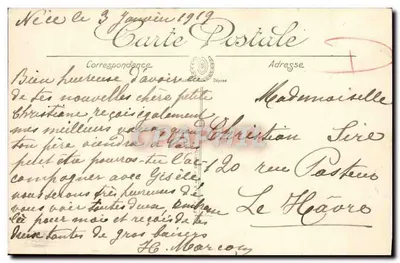 Nice le 3 Janvier 1919
Carte Postale
Correspondance
Adresse
Bien heureuse d'avoir eu
de tes nouvelles chère petite
Christiane reçois également
mes meilleurs
ton père viendra
petit pourras-tu l'ac-
compagner avec Gisèle
nous serons très heureuses de
vous voir toutes deux
pour moi et reçois de tes
deux tantes de gros baisers
H. Marcou
Mademoiselle
Christian Sire
120 rue Pasteur
Le Hâvre